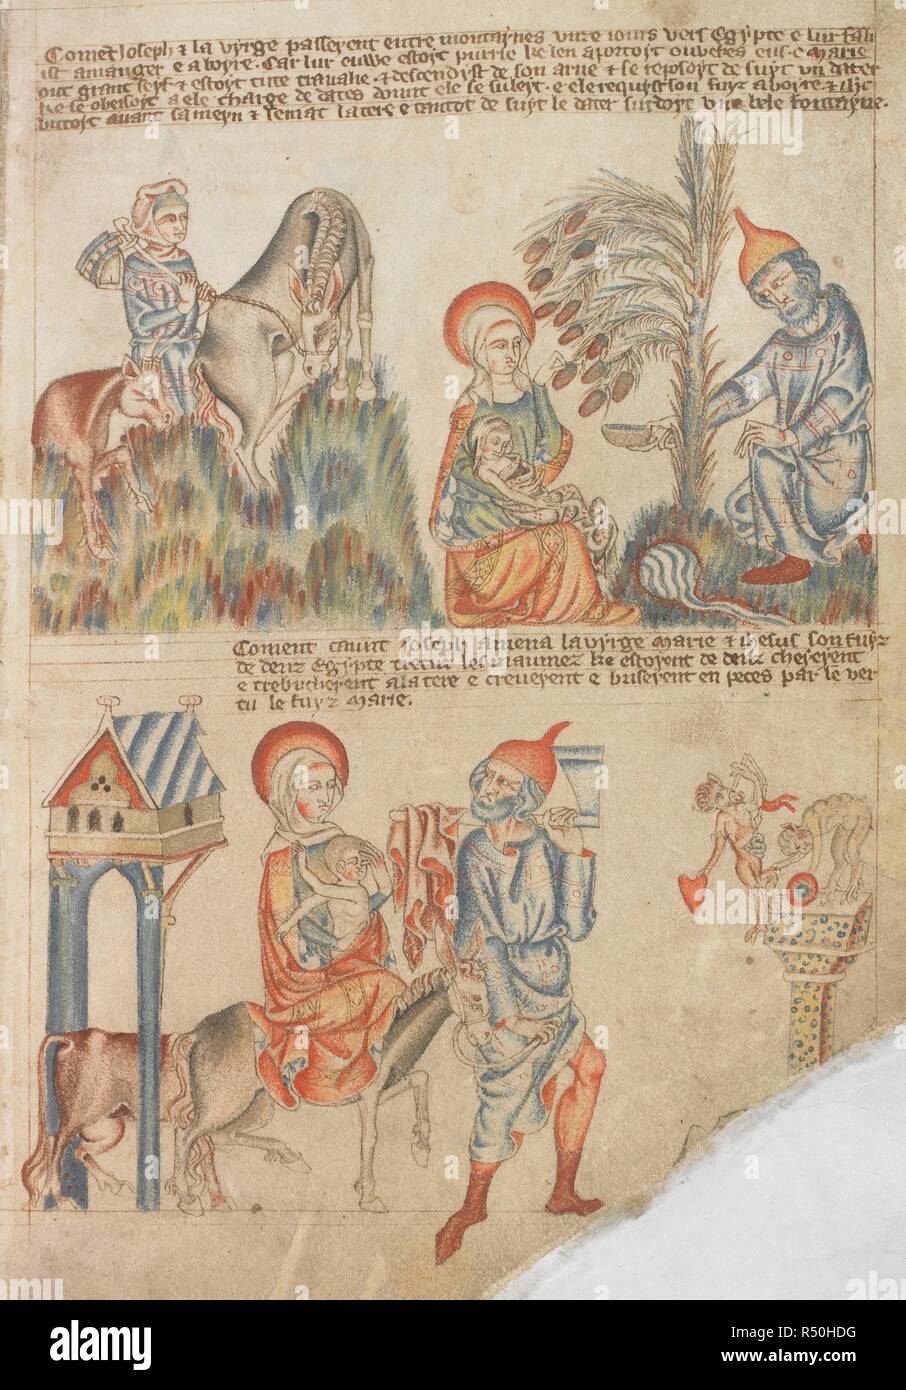 Coment Joseph & la vyrge passerent entre montaynes viij iours vers Egypte e lur fali
ist amanger e a boyre. Car lur euwe estoyt purrie ke len aportoyt ouekes eus. e Marie
out grant seyf & estoyt tute trauaile. & descendyst de son asne & se reposoyt de suyt un dater
ke se obeisoyt a ele charge de dates dount ele se suleyt. e ele requist son fuyz a boyre. & ihc
buttoyt auant sa meyn & seniat la tere e tantot de suyt le dater surdoyt une bele fontayne.
Coment cavnt Joseph amena la vyrge Marie & ihesus son fuyz
de denz Egypte les maumez ke estoyent de denz cheyerent
e trebucherent a la tere e creuerent e briserent en peces par le ver
tu le fuyz Marie.
alamy
a
R50HDG
www.alamy.com